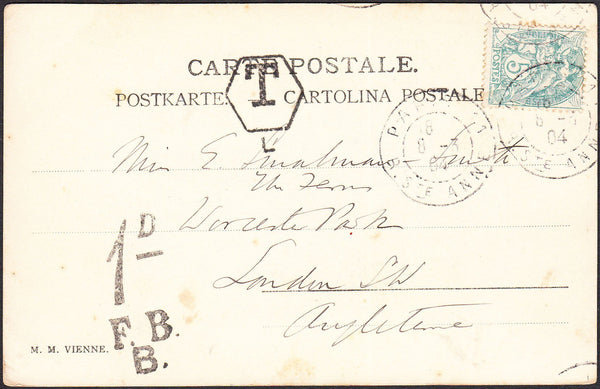 CARTE POSTALE.
POSTKARTE. — CARTOLINA POSTALE
T
L
POSTES
5
PARIS
6
8 -3
04
STE ANNE
6
8 -3
04
STE ANNE
Miss E. Smalman-Smith
The Ferns
Worcester Park
London SW
Angleterre
1D
F.B.
B.
M. M. VIENNE.